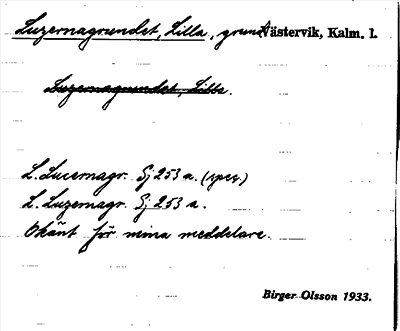 Luzernagrundet, Lilla, grund Västervik, Kalm. l.
Luzernagrundet, Lilla.
L. Lucernagr. Sj 253 a. (spec.)
L. Luzernagr. Sj 253 a.
Okänt för mina meddelare.
Birger Olsson 1933.